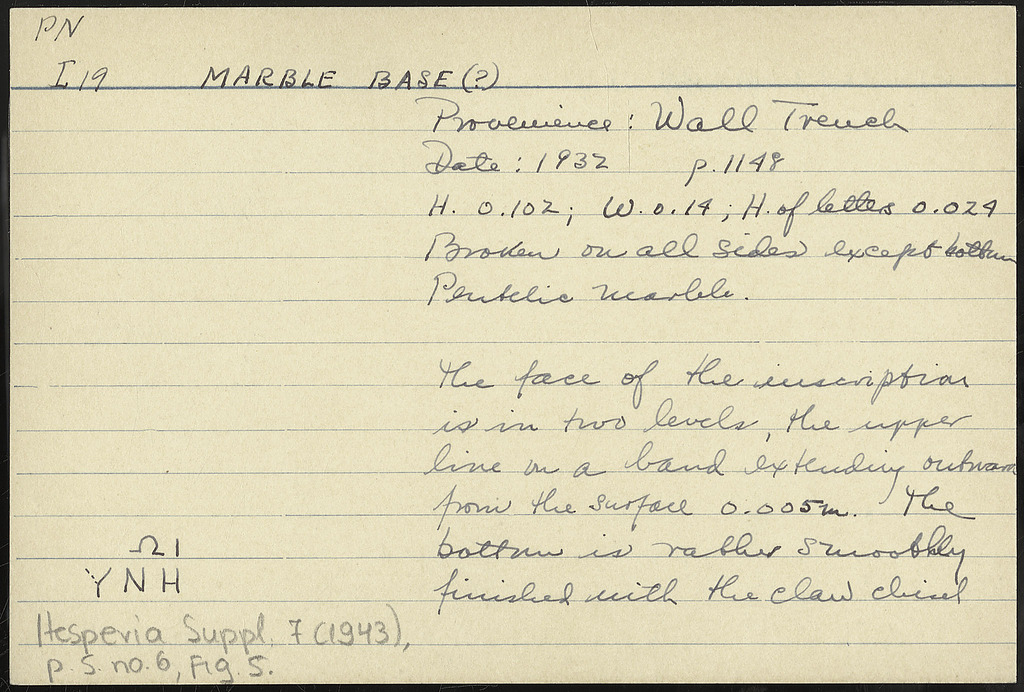 PN
I 19 MARBLE BASE (?)
Provenience: Wall Trench
Date: 1932 p. 1148
H. 0.102; W. 0.14; H. of letters 0.024
Broken on all sides except bottom
Pentelic marble.
The face of the inscription
is in two levels, the upper
line on a band extending outward
from the surface 0.005m. The
bottom is rather smoothly
finished with the claw chisel
ΩΙ
ΥΝΗ
Hesperia Suppl. 7 (1943),
p. 5. no. 6, Fig. 5.